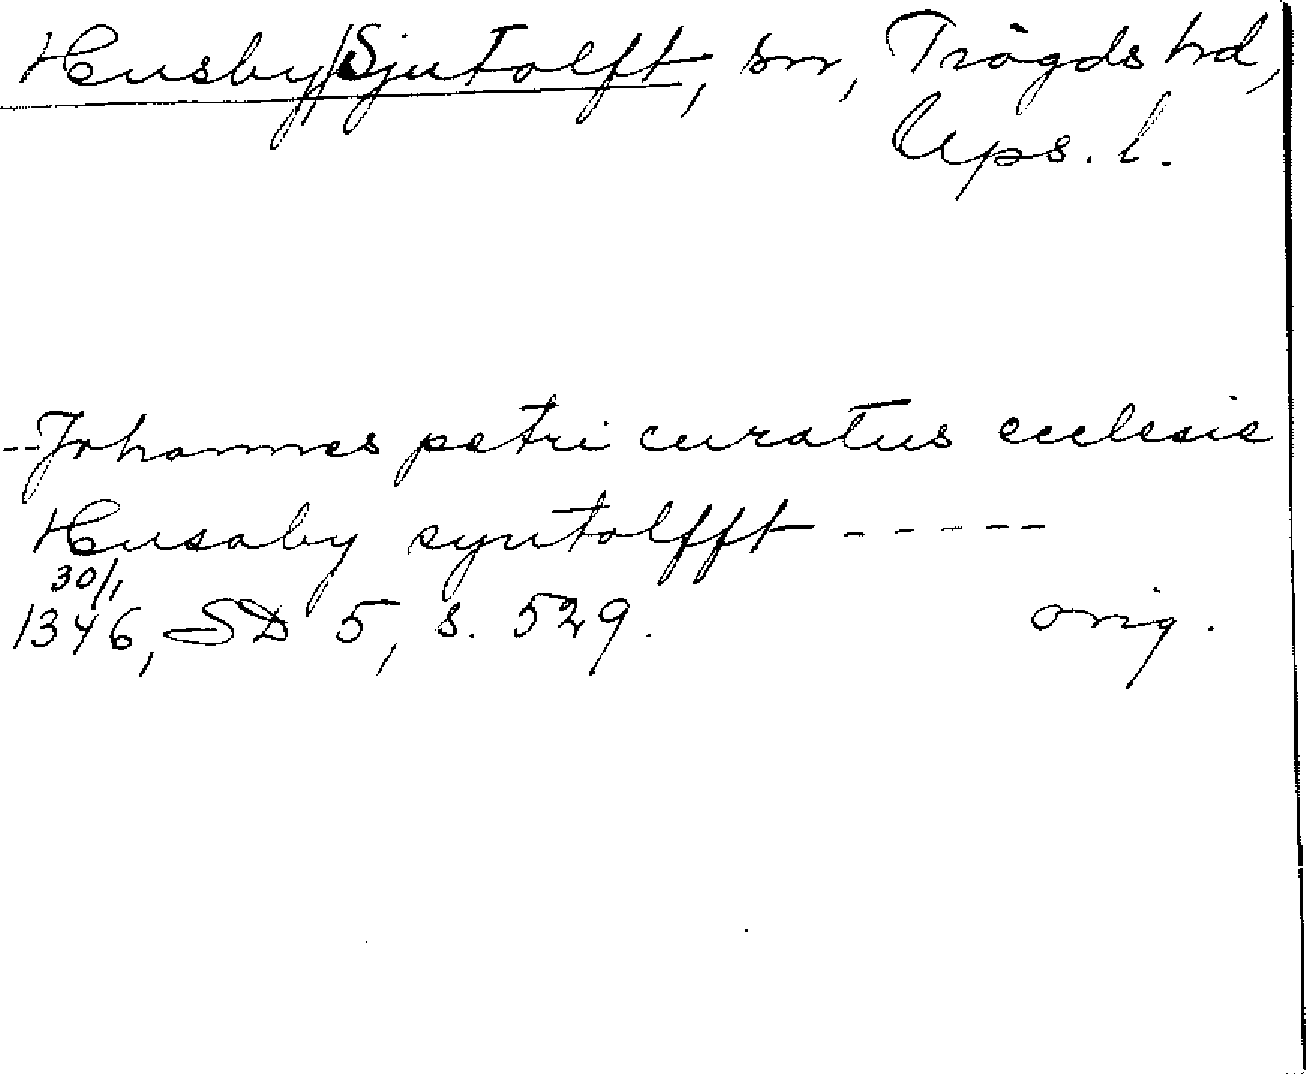 Husby/Sjutolft, sn, Trögds hd,
Ups. l.
-- Johannes petri curatus ecclesie
Husaby syutolfft -----
30/1
1346, SD 5, s. 529. orig.